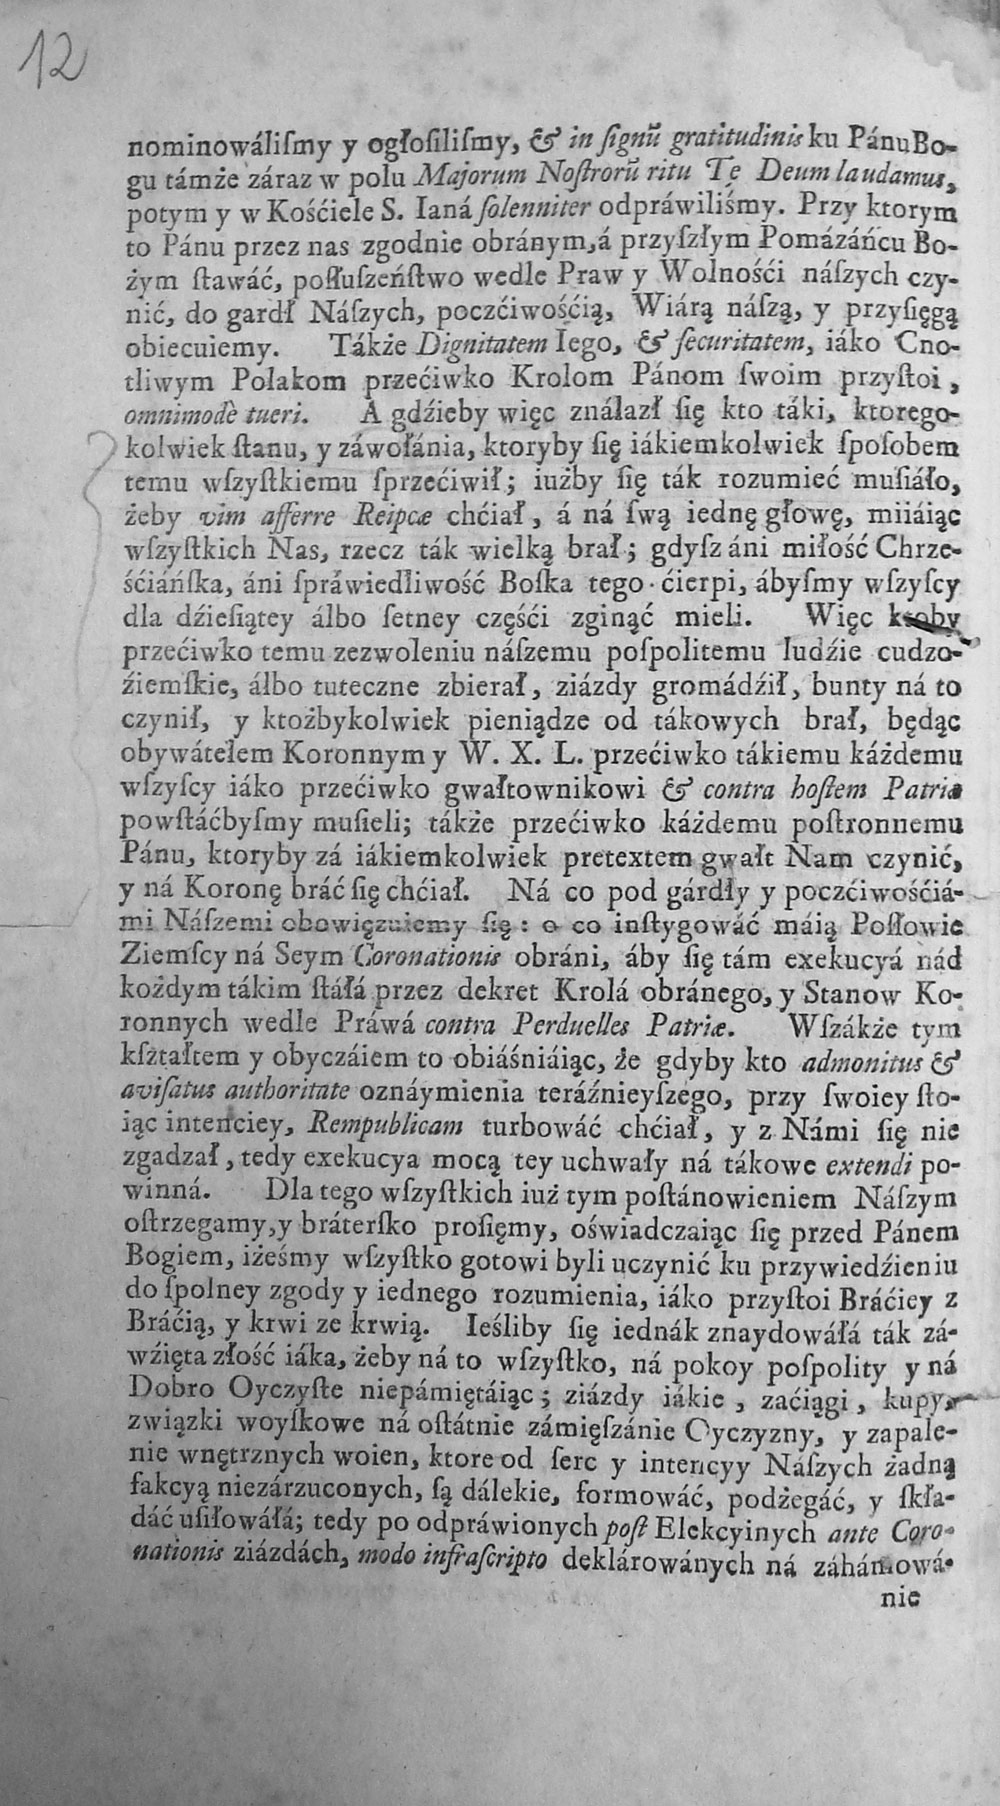 12
nominowáliſmy y ogłoſiliſmy, & in ſignũ gratitudinis ku Pánu Bo-
gu támże záraz w polu Majorum Noſtrorũ ritu Te Deum laudamus,
potym y w Kośćiele S. Ianá ſolenniter odpráwiliśmy. Przy ktorym
to Pánu przez nas zgodnie obránym, á przyſzłym Pomázáńcu Bo-
żym ſtawáć, poſłuszeńſtwo wedle Praw y Wolnośći náſzych czy-
nić, do gardł Náſzych, poczćiwośćią, Wiárą náſzą, y przyſięgą
obiecuiemy. Tákże Dignitatem Iego, & ſecuritatem, iáko Cno-
tliwym Polakom przećiwko Krolom Pánom ſwoim przyſtoi,
omnimodè tueri. A gdźieby więc ználazł ſię kto táki, ktorego-
kolwiek ſtanu, y záwołánia, ktoryby ſię iákiemkolwiek ſpoſobem
temu wſzyſtkiemu ſprzećiwił; iużby ſię ták rozumieć muſiáło,
żeby vim afferre Reipcæ chćiał, á ná ſwą iednę głowę, miiáiąc
wſzyſtkich Nas, rzecz ták wielką brał; gdyſz áni miłość Chrze-
śćiáńſka, áni ſpráwiedliwość Boſka tego ćierpi, ábyſmy wſzyſcy
dla dźieſiątey álbo ſetney częśći zginąć mieli. Więc ktoby
przećiwko temu zezwoleniu náſzemu poſpolitemu ludźie cudzo-
źiemſkie, álbo tuteczne zbierał, ziázdy gromádźił, bunty ná to
czynił, y ktożbykolwiek pieniądze od tákowych brał, będąc
obywátelem Koronnym y W. X. L. przećiwko tákiemu káżdemu
wſzyſcy iáko przećiwko gwałtownikowi & contra hoſtem Patriæ
powſtáćbyſmy muſieli; tákże przećiwko káżdemu poſtronnemu
Pánu, ktoryby zá iákiemkolwiek pretextem gwałt Nam czynić,
y ná Koronę bráć ſię chćiał. Ná co pod gárdły y poczćiwośćiá-
mi Náſzemi obowięzuiemy ſię: o co inſtygowáć máią Poſłowie
Ziemſcy ná Seym Coronationis obráni, áby ſię tám exekucyá nád
kożdym tákim ſtáłá przez dekret Krolá obránego, y Stanow Ko-
ronnych wedle Práwá contra Perduelles Patriæ. Wſzákże tym
kſztałtem y obyczáiem to obiáśniáiąc, że gdyby kto admonitus &
aviſatus authoritate oznáymienia teráźnieyſzego, przy ſwoiey ſto-
iąc intenciey, Rempublicam turbowáć chćiał, y z Námi ſię nie
zgadzał, tedy exekucya mocą tey uchwały ná tákowe extendi po-
winná. Dla tego wſzyſtkich iuż tym poſtánowieniem Náſzym
oſtrzegamy, y bráterſko proſięmy, oświadczaiąc ſię przed Pánem
Bogiem, iżeśmy wſzyſtko gotowi byli uczynić ku przywiedźieniu
do ſpolney zgody y iednego rozumienia, iáko przyſtoi Bráćiey z
Bráćią, y krwi ze krwią. Ieśliby ſię iednák znaydowáłá ták zá-
wźięta złość iáka, żeby ná to wſzyſtko, ná pokoy poſpolity y ná
Dobro Oyczyſte niepámiętáiąc; ziázdy iákie, zaćiągi, kupy,
związki woyſkowe ná oſtátnie zámięſzánie Oyczyzny, y zapale-
nie wnętrznych woien, ktore od ſerc y intencyy Náſzych żadną
fakcyą niezárzuconych, ſą dálekie, formowáć, podżegáć, y ſkła-
dáć uſiłowáłá; tedy po odpráwionych poſt Elekcyinych ante Coro-
nationis ziázdách, modo infraſcripto deklárowánych ná záhámowá-
nie